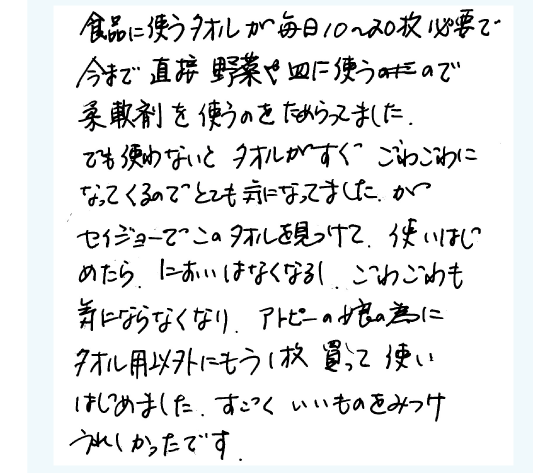 食品に使うタオルが毎日10〜20枚必要で
今まで直接野菜や皿に使うので
柔軟剤を使うのをためらってました.
でも使わないとタオルがすぐごわごわに
なってくるのでとても気になってました.が
セイジョーでこのタオルを見つけて、使いはじ
めたら、においはなくなるし、ごわごわも
気にならなくなり、アトピーの娘の為に
タオル用以外にもう1枚買って使い
はじめました.すごくいいものをみつけ
うれしかったです.